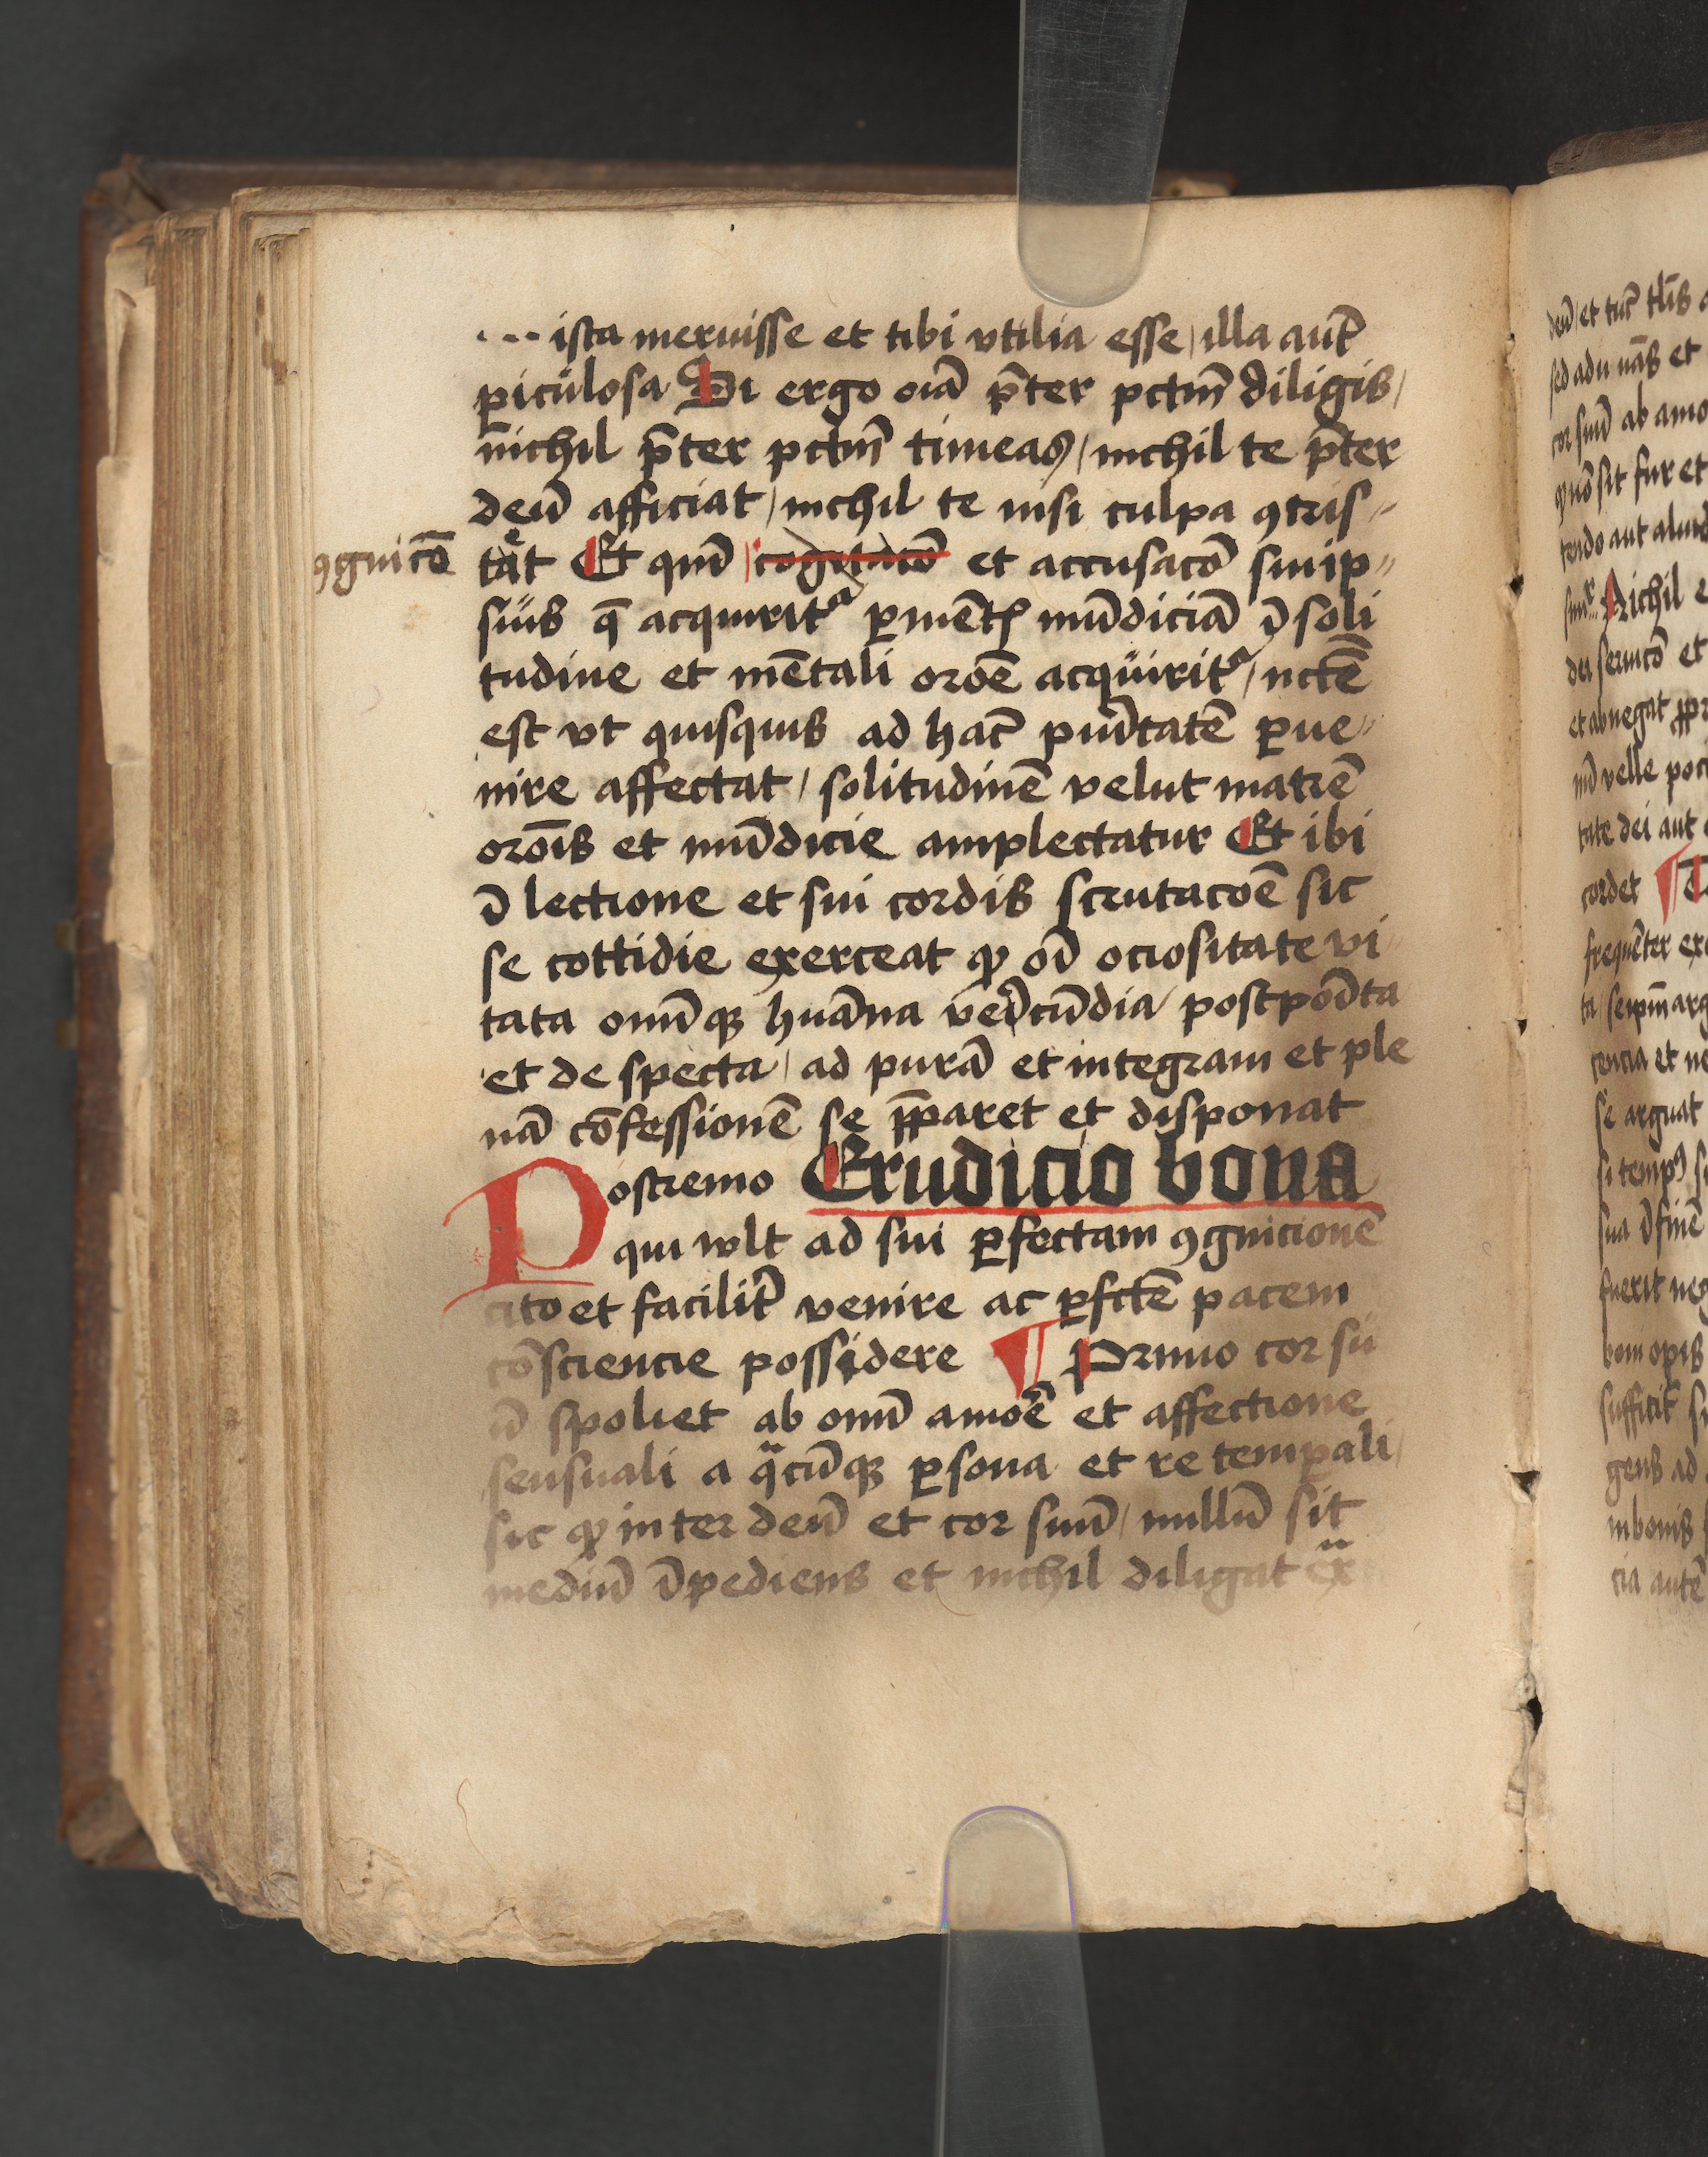 ... ista meruisse et tibi vtilia esse / illa aut̄
ꝑiculosa Si ergo oīa p̄ter pctm̄ diligis /
nichil p̄ter pctm̄ timeas / nichil te p̄ter
deū afficiat / nichil te nisi culpa ꝯtris-
tet Et qm̄ cogitacō et accusacō suiip-
ꝯgnicō
sius q̄ acquirit ꝑ mentꝭ mūdiciā ī soli
tudine et mētali oroē acquirit / nctē
est vt quisquis ad hac̄ puītatē ꝑue-
nire affectat / solitudinē velut matrē
oroīs et mūdicie amplectatur Et ibi
ī lectione et sui cordis scrutacoē sic
se cottidie exerceat ꝙ oī ociositate vi-
tata omīqꝫ huāna verecūdia postpoīta
et de specta / ad purā et integram et ple
nā cōfessionē se p̄paret et disponat
Postremo Erudicio bona
qui wlt ad sui ꝑfectam ꝯgnicionē
cito et facilit̄ venire ac ꝑfctē pacem
cōsciencie possidere ¶ Primo cor su
ū spoliet ab omī amoē et affectione
sensuali a qͣcūqꝫ ꝑsona et re temꝑali /
sic ꝙ inter deū et cor suū / nullū sit
mediū īpediens et nichil diligat exͣ
deū / et tūc
sed ad
cor suū ab amo
sit fur et
tendo aut
Nichil e
dei seruicō et
et abnegat
velle
tate dei aut
cordet ¶
frequēter
ta / seipm̄ arg
cencia et ne
se arguat
si tempꝰ
sua ī finē
fuerit neg
boni opis
sufficit
gens ad
in bonis
cia autē